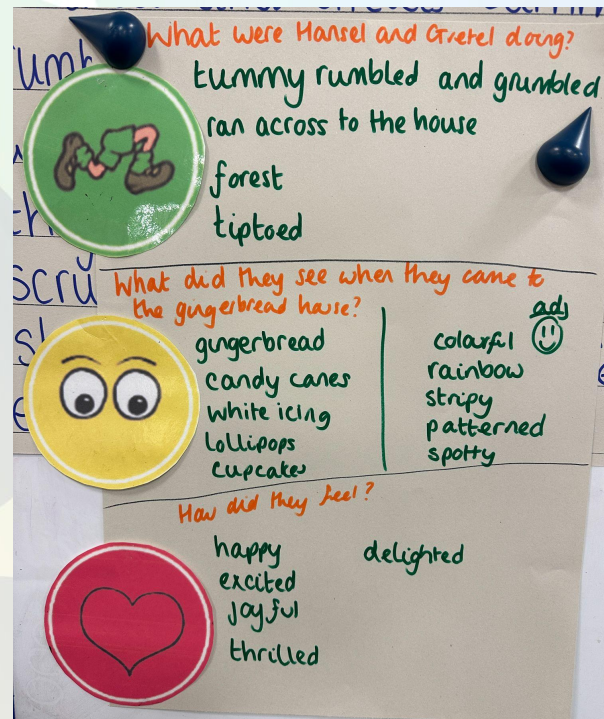 What were Hansel and Gretel doing?
tummy rumbled and grumbled
ran across to the house
forest
tiptoed
scru
What did they see when they came to
the gingerbread house?
gingerbread
candy canes
white icing
lollipops
cupcakes
adj
colourful
rainbow
stripy
patterned
spotty
How did they feel?
happy
excited
joyful
thrilled
delighted